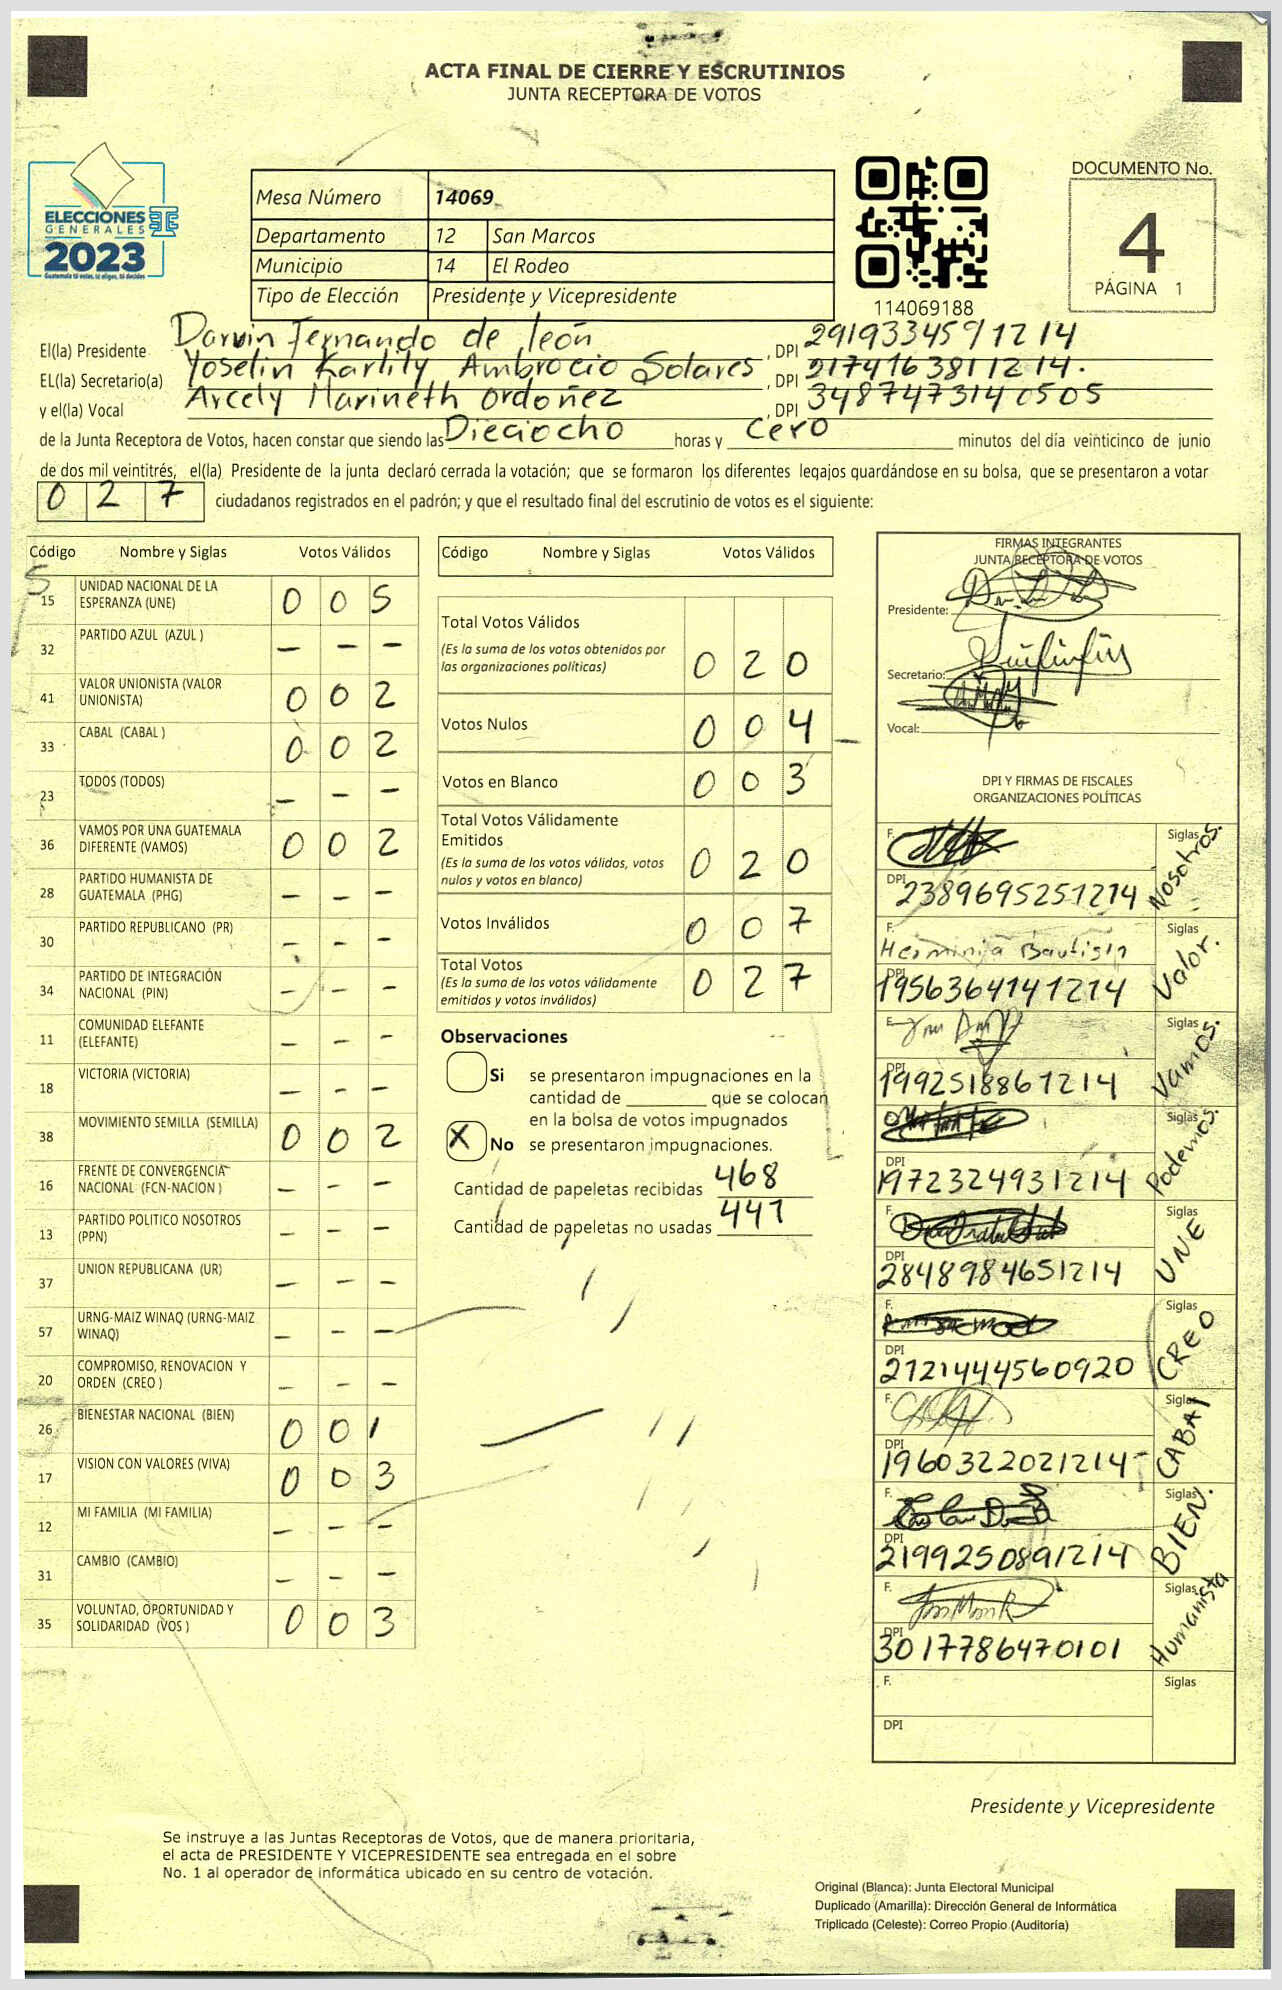 ACTA FINAL DE CIERRE Y ESCRUTINIOS
JUNTA RECEPTORA DE VOTOS
ELECCIONES
GENERALES
2023
Guatemala tú votas, tú eliges, tú decides
Mesa Número 14069
Departamento 12 San Marcos
Municipio 14 El Rodeo
Tipo de Elección Presidente y Vicepresidente
114069188
DOCUMENTO No.
4
PÁGINA 1
El(la) Presidente Darvin Fernando de león, DPI 2919334591214
EL(la) Secretario(a) Yoselin Karlily Ambrocio Solares, DPI 2174163811214.
y el(la) Vocal Arcely Marineth Ordoñez, DPI 3487473140505
de la Junta Receptora de Votos, hacen constar que siendo las Dieciocho horas y cero minutos del día veinticinco de junio
de dos mil veintitrés, el(la) Presidente de la junta declaró cerrada la votación; que se formaron los diferentes legajos guardándose en su bolsa, que se presentaron a votar
0 2 7 ciudadanos registrados en el padrón; y que el resultado final del escrutinio de votos es el siguiente:
Código Nombre y Siglas Votos Válidos
5
15 UNIDAD NACIONAL DE LA ESPERANZA (UNE) 0 0 5
32 PARTIDO AZUL (AZUL ) - - -
41 VALOR UNIONISTA (VALOR UNIONISTA) 0 0 2
33 CABAL (CABAL ) 0 0 2
23 TODOS (TODOS) - - -
36 VAMOS POR UNA GUATEMALA DIFERENTE (VAMOS) 0 0 2
28 PARTIDO HUMANISTA DE GUATEMALA (PHG) - - -
30 PARTIDO REPUBLICANO (PR) - - -
34 PARTIDO DE INTEGRACIÓN NACIONAL (PIN) - - -
11 COMUNIDAD ELEFANTE (ELEFANTE) - - -
18 VICTORIA (VICTORIA) - - -
38 MOVIMIENTO SEMILLA (SEMILLA) 0 0 2
16 FRENTE DE CONVERGENCIA NACIONAL (FCN-NACION ) - - -
13 PARTIDO POLITICO NOSOTROS (PPN) - - -
37 UNION REPUBLICANA (UR) - - -
57 URNG-MAIZ WINAQ (URNG-MAIZ WINAQ) - - -
20 COMPROMISO, RENOVACION Y ORDEN (CREO ) - - -
26 BIENESTAR NACIONAL (BIEN) 0 0 1
17 VISION CON VALORES (VIVA) 0 0 3
12 MI FAMILIA (MI FAMILIA) - - -
31 CAMBIO (CAMBIO) - - -
35 VOLUNTAD, OPORTUNIDAD Y SOLIDARIDAD (VOS ) 0 0 3
Código Nombre y Siglas Votos Válidos
Total Votos Válidos
(Es la suma de los votos obtenidos por
las organizaciones políticas) 0 2 0
Votos Nulos 0 0 4
Votos en Blanco 0 0 3
Total Votos Válidamente
Emitidos
(Es la suma de los votos válidos, votos
nulos y votos en blanco) 0 2 0
Votos Inválidos 0 0 7
Total Votos
(Es la suma de los votos válidamente
emitidos y votos inválidos) 0 2 7
Observaciones
Si se presentaron impugnaciones en la
cantidad de ________ que se colocan
en la bolsa de votos impugnados
X No se presentaron impugnaciones.
Cantidad de papeletas recibidas 468
Cantidad de papeletas no usadas 441
FIRMAS INTEGRANTES
JUNTA RECEPTORA DE VOTOS
Presidente:
Secretario:
Vocal:
DPI Y FIRMAS DE FISCALES
ORGANIZACIONES POLÍTICAS
F. Siglas Nosotros.
DPI 2389695251214
F. Herminia Bautista Siglas Valor.
DPI 1956364141214
F. Siglas Vamos.
DPI 1992518861214
Siglas Podemos.
DPI 1972324931214
F. Siglas UNE
DPI 2848984651214
F. Siglas CREO
DPI 2121444560920
F. Siglas CABAL
DPI 1960322021214
F. Siglas BIEN.
DPI 2199250891214
F. Siglas Humanista
DPI 3017786470101
F. Siglas
DPI
Presidente y Vicepresidente
Se instruye a las Juntas Receptoras de Votos, que de manera prioritaria,
el acta de PRESIDENTE Y VICEPRESIDENTE sea entregada en el sobre
No. 1 al operador de informática ubicado en su centro de votación.
Original (Blanca): Junta Electoral Municipal
Duplicado (Amarilla): Dirección General de Informática
Triplicado (Celeste): Correo Propio (Auditoría)